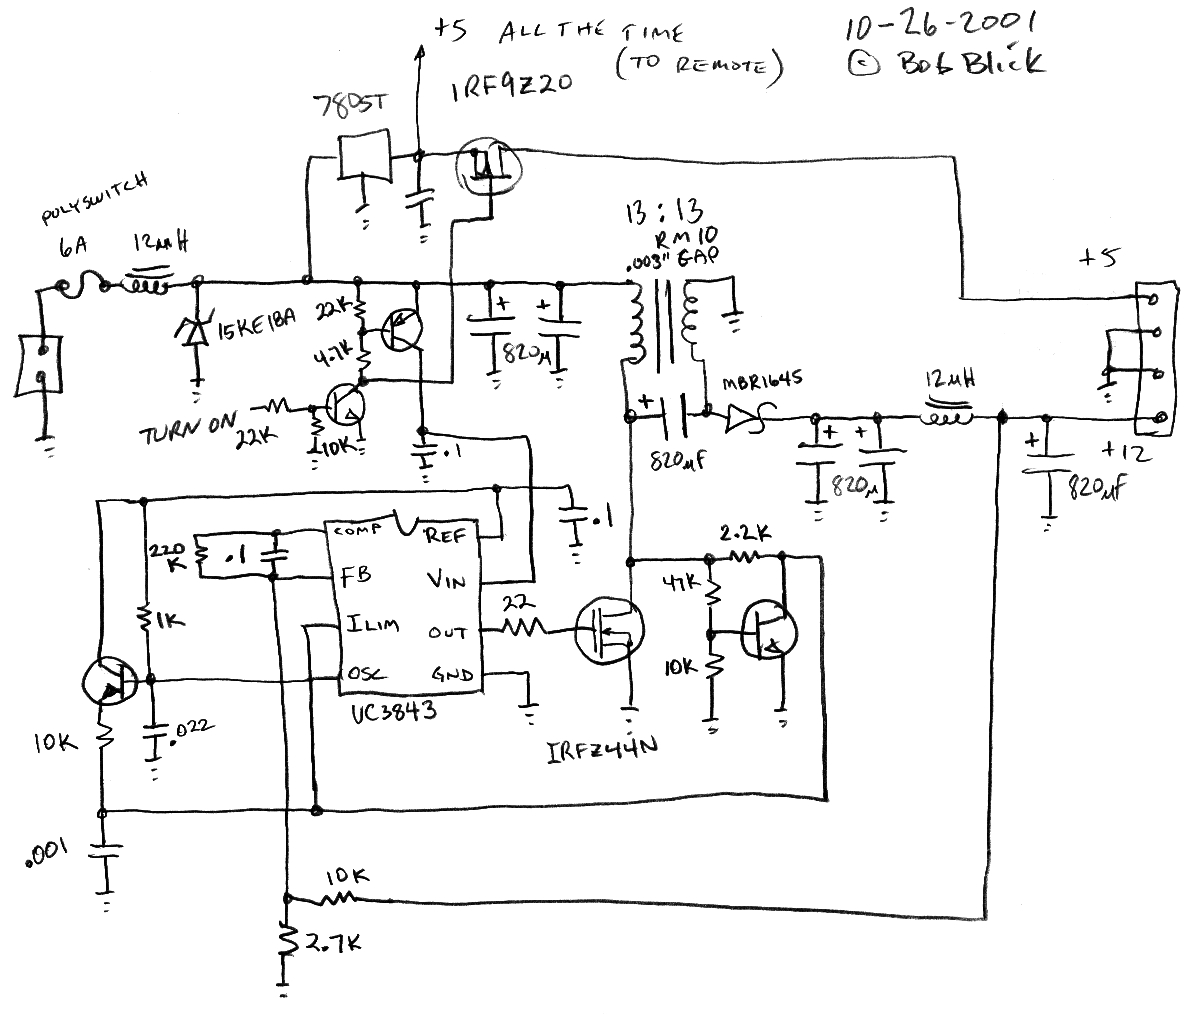 +5 ALL THE TIME
(TO REMOTE)
10-26-2001
© Bob Blick
IRF9Z20
7805T
POLYSWITCH
6A
12µH
13:13
RM10
.003" GAP
+5
15KE18A
22K
4.7K
+
+
820µ
TURN ON
22K
10K
.1
+
820µF
MBR1645
12µH
+
+
820µ
+
+12
820µF
220
K
.1
COMP
REF
.1
FB
VIN
ILIM
OUT
OSC
GND
UC3843
22
2.2K
47K
10K
IRFZ44N
1K
.022
10K
.001
10K
2.7K